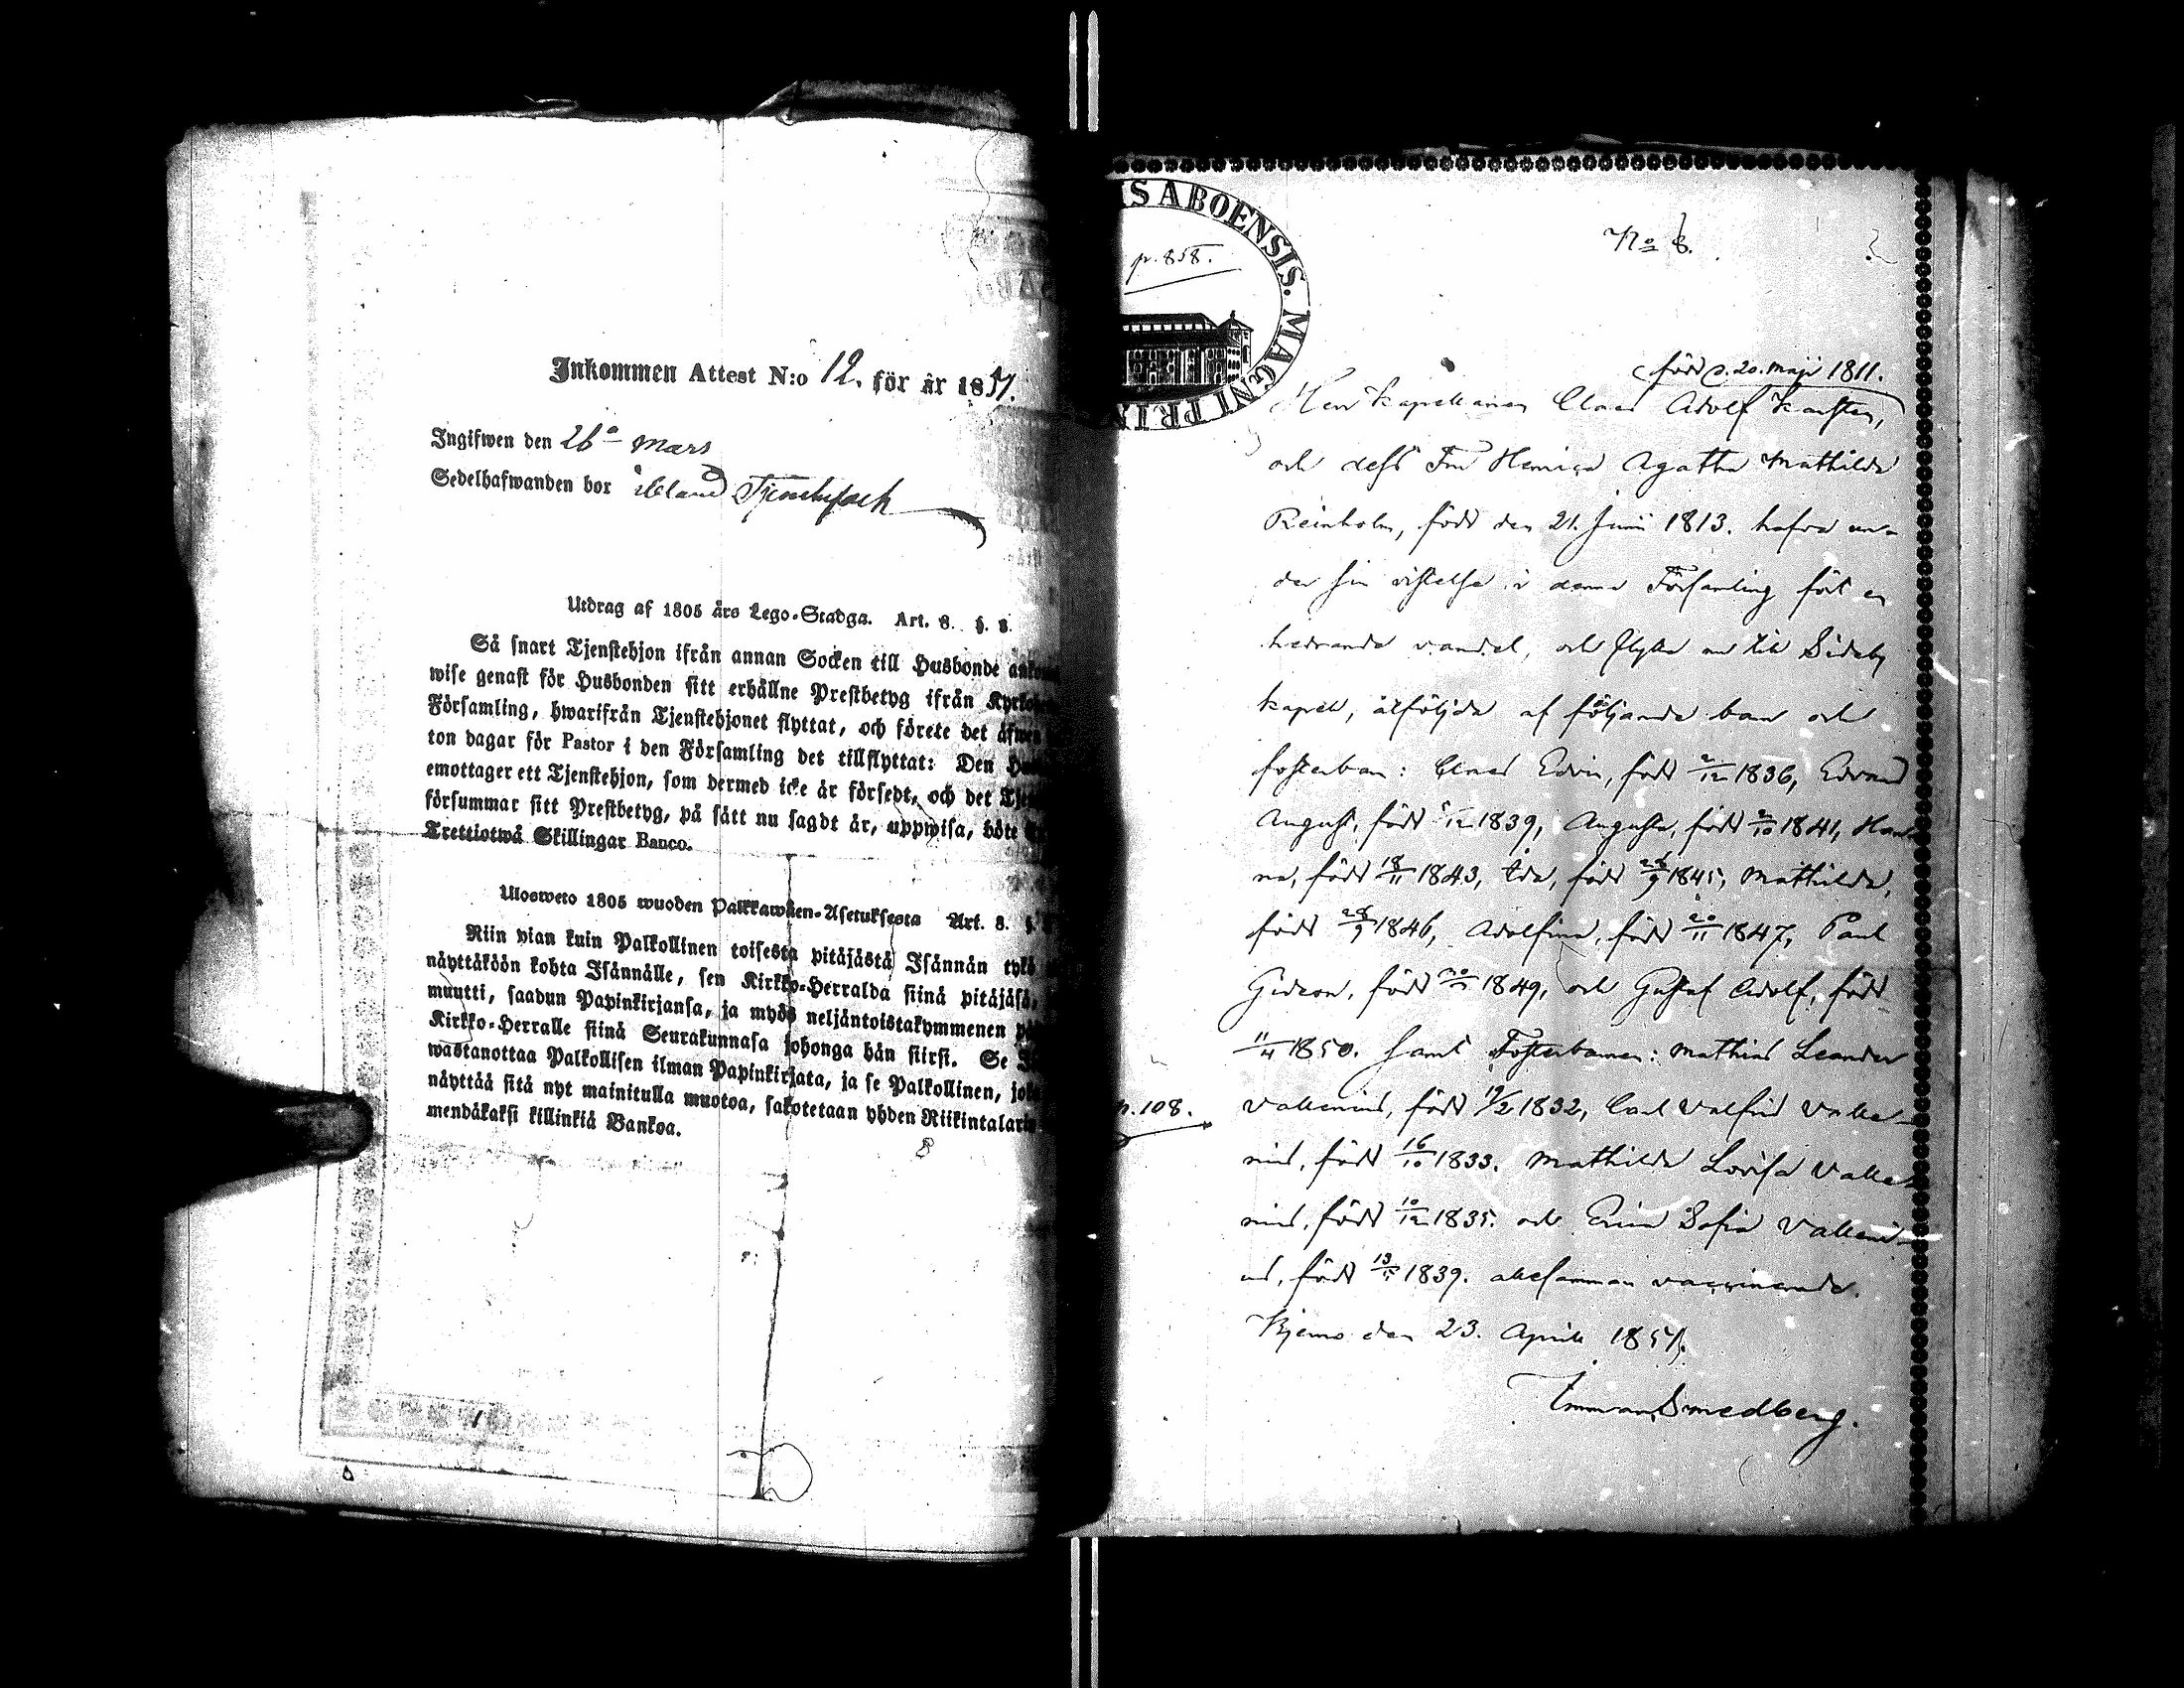 Inkommen Attest N:o 12. för år 1851.
Ingifwen den 26 Mars
Sedelhafwanden bor ibland Tjenstefolk
Utdrag af 1805 års Lego-Stadga. Art. 8. §. 8.
Så snart Tjenstehjon ifrån annan Socken till Husbonde
wise genast för Husbonden sitt erhållne Prestbetyg ifrån
Församling, hwarifrån Tjenstehjonet flyttat, och förete det
ton dagar för Pastor i den Församling det tillflyttat: Den
emottager ett Tjenstehjon, som dermed icke är försedt, och det
försummar sitt Prestbetyg, på sätt nu sagdt är, uppwisa, böte
Trettiotwå Skillingar Banco.
Ulosweto 1805 wuoden Palkkawäen-Asetuksesta Art. 8. §.
Niin pian kuin Palkollinen toisesta pitäjästä Isännän tykö
näyttäköön kohta Isännälle, sen Kirkko-Herralda siinä pitäjäsä,
muutti, saadun Papinkirjansa, ja myös neljäntoistakymmenen
Kirkko-Herralle siinä Seurakunnasa johonga hän siirsi. Se
wastanottaa Palkollisen ilman Papinkirjata, ja se Palkollinen,
näyttää sitä nyt mainitulla muotoa, sakotetaan yhden Riikintalarin
mendäkaksi killinkiä Bankoa.
8
IS ABOENSIS. MAGNI PRIN
p. 858.
No 8.
född d. 20. Maji 1811.
Herr Kapellanen Claes Adolf Karsten,
och dess Fru Henrica Agatha Mathilda
Reinholm, född den 21. Junii 1813. hafva un-
der sin vistelse i denna Församling fört en
hedrande vandel, och flytta nu till Sideby
kapell, åtföljde af följande barn och
fosterbarn: Claes Edvin, född 2/12 1836, Edvard
August, född /12 1839, Augusta, född 2/10 1841, Han-
na, född 18/11 1843, Ida, född 26/9 1845, Mathilda,
född 28/9 1846, Adolfina, född 20/11 1847, Paul
Gideon, född 1849, och Gustaf Adolf, född
11/4 1850. samt Fosterbarnen: Mathias Leander
p. 108.
Vallenius, född 19/2 1832, Carl Valfrid Valle-
nius, född 16/10 1833. Mathilda Lovisa Valle-
nius, född 10/12 1835. och Erica Sofia Valleni-
us, född 13/ 1839. allesamman vaccinerade.
Kjemo den 23. April 1851.
Imman. Smedberg.